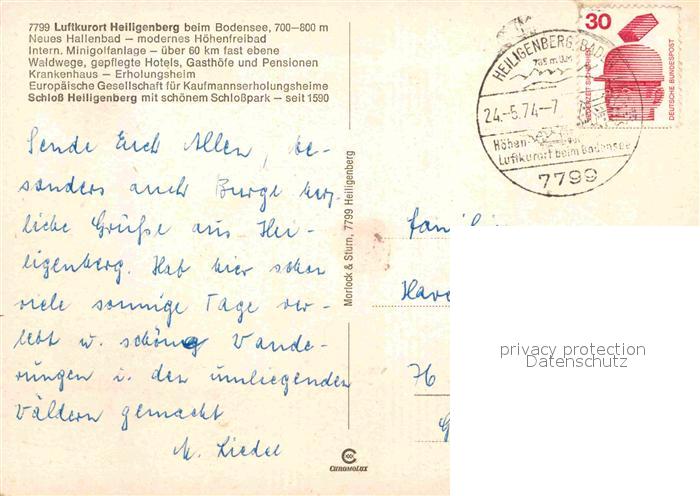 7799 Luftkurort Heiligenberg beim Bodensee, 700—800 m
Neues Hallenbad — modernes Höhenfreibad
Intern. Minigolfanlage — über 60 km fast ebene
Waldwege, gepflegte Hotels, Gasthöfe und Pensionen
Krankenhaus — Erholungsheim
Europäische Gesellschaft für Kaufmannserholungsheime
Schloß Heiligenberg mit schönem Schloßpark — seit 1590
Sende Euch Allen, be-
sonders auch Burge herz-
liche Grüße aus Hei-
ligenberg. Hat hier schon
viele sonnige Tage ver-
lebt u. schöne Wande-
rungen i. den umliegenden
Wäldern gemacht
M. Liedel
Morlock & Sturn, 7799 Heiligenberg
CHROMOLUX
30
DEUTSCHE BUNDESPOST
HEILIGENBERG/BADEN
24.-5.74-7
Höhen-
Luftkurort beim Bodensee
7799
76
privacy protection
Datenschutz